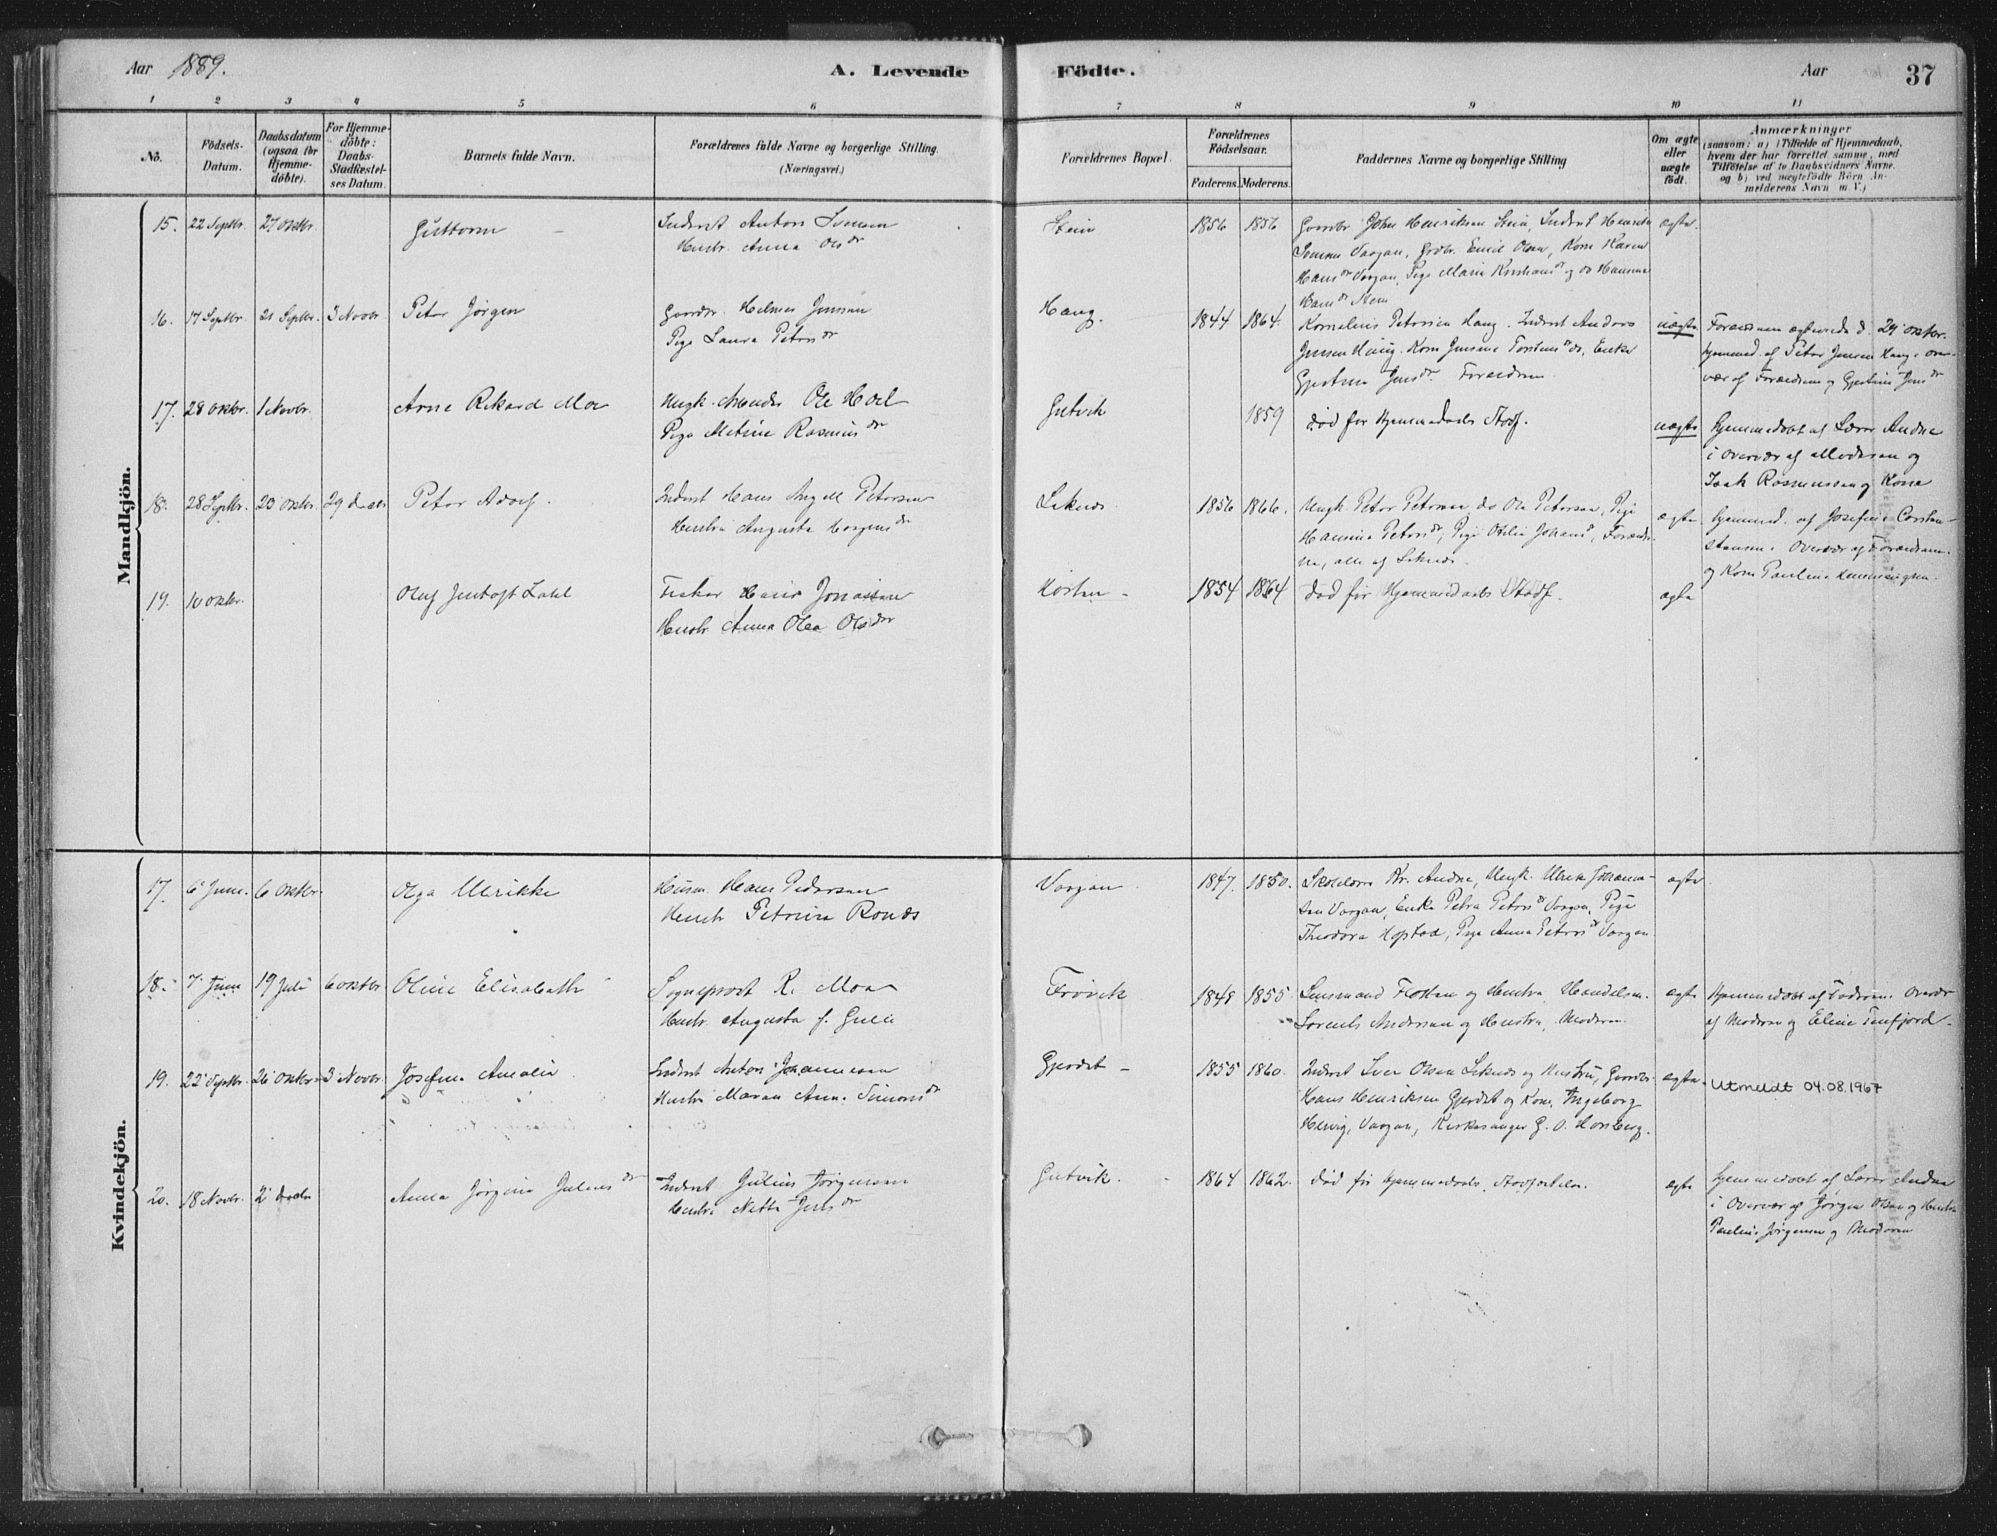 Aar 1889.
A. Levende Födte.
Aar 37
1 2 3 4 5 6 7 8 9 10 11
No.
Födsels-
Datum.
Daabsdatum
(ogsaa for
Hjemme-
döbte).
For Hjemme-
döbte:
Daabs-
Stadfæstel-
ses Datum.
Barnets fulde Navn.
Forældrenes fulde Navne og borgerlige Stilling.
(Næringsvei.)
Forældrenes Bopæl.
Forældrenes
Födselsaar.
Faderens. Moderens.
Faddernes Navne og borgerlige Stilling
Om ægte
eller
uægte
födt.
Anmærkninger
(saasom: a) i Tilfælde af Hjemmedaab,
hvem der har forrettet samme, med
Tilföielse af to Daabsvidners Navne.
og b) ved uægtefödte Börn An-
melderens Navn m. V.)
Mandkjön.
15. 22 Septbr. 27 Oktbr. Guttorm
Inderst Anton Simonsen
Hustr. Anna Olsdr
Stein 1856 1856
Gaardbr John Henriksen Stein, Inderst Henrik
Simonsen Vaagan, Grdbr. Emil Olsen, Kone Karen
Hansdr Vaagan, Pige Marie
ægte.
16. 17 Septbr. 21 Septbr. 3 Novbr Peter Jörgen
Gaardbr. Helmer Jenssen
Pige Laura Petersdr
Haug. 1844 1864.
Kornelius Petersen Haug. Inderst Anders
Jensen Haug. Kone
Forældrene
uægte
Forældrene ægteviede d. 29 Oktbr.
hjemmed. af Peter Jensen Haug i over-
vær af Forældrene og
17. 28 Oktbr. 1 Novbr. Arne Rikard Moe
Ungk. Ole Hoel
Pige Metine Rasmusdr
Gutvik 1859
död för Hjemmedaabs Stadf.
uægte
hjemmedöbt af Lærer Andne
i Overvær af Moderen og
Isak Rasmussen og Kone
18. 28 Septbr. 20 Oktbr. 29 Decbr Peter Adolf.
Inderst Hans Angell Petersen
Hustru Augusta
Leknes 1856 1866.
Ungk. Peter Petersen, do Ole Petersen, Pige
Hansine Petersdr, Pige Otelia Johansdr, Forældre-
ne, alle af Leknes.
ægte
hjemmed. af Josefine Carsten-
stensen i Overvær af Forældrene.
og Kone Pauline Henningsen.
19. 10 Oktbr.
Olaf
Fisker Hans Jonassen
Hustr. Anna Olea Olsdr
1854 1864
död för Hjemmedaabs Stadf.
ægte
Kvindekjön.
17. 6 Juni. 6 Oktbr Olga Ulrikke
Husm. Hans Pedersen
Hustr Petrine
Vaagan 1847. 1850.
Skolelærer Kr. Andne, Ungk. Ulrik Johanne-
sen Vaagan, Enke Petra Petersdr Vaagan, Pige
Theodora Hopstad, Pige Anna Petersdr Vaagan
ægte
18. 7 Juni 19 Juli 6 Oktbr Oline Elisabeth
Sogneprest R. Moe
Hustr. Augusta f.
Frövik 1848 1855
Lensmand Flotten og Hustru, Handelsm.
Lorents Andersen og Hustru, Moderen.
ægte
hjemmedöbt af Faderen i Overvær
af Moderen og Eline Finfjord.
19. 22 Septbr. 26 Oktbr 3 Novbr. Josefine Amalie
Inderst Anton Johannesen
Hustru Maren Anna Simonsdr
Gjerdet 1855 1860.
Inderst Iver Olsen Leknes og Hustru, Gaardbr
Hans Henriksen Gjerdet og Kone, Ingeborg
Helvig, Vaagan, Kirkesanger G. O. Horsberg.
ægte
Utmeldt 04.08.1967
20. 18 Novbr. 2 Decbr Anna Jörgine Juliusdr
Inderst Julius Jörgensen
Hustru Netta Jensdr
Gutvik. 1864 1862.
död för Hjemmedaabs Stadfæstelse.
ægte
hjemmedöbt af Lærer Andne
i Overvær af Jörgen Olsen og Hustru
Pauline Jörgensen og Moderen